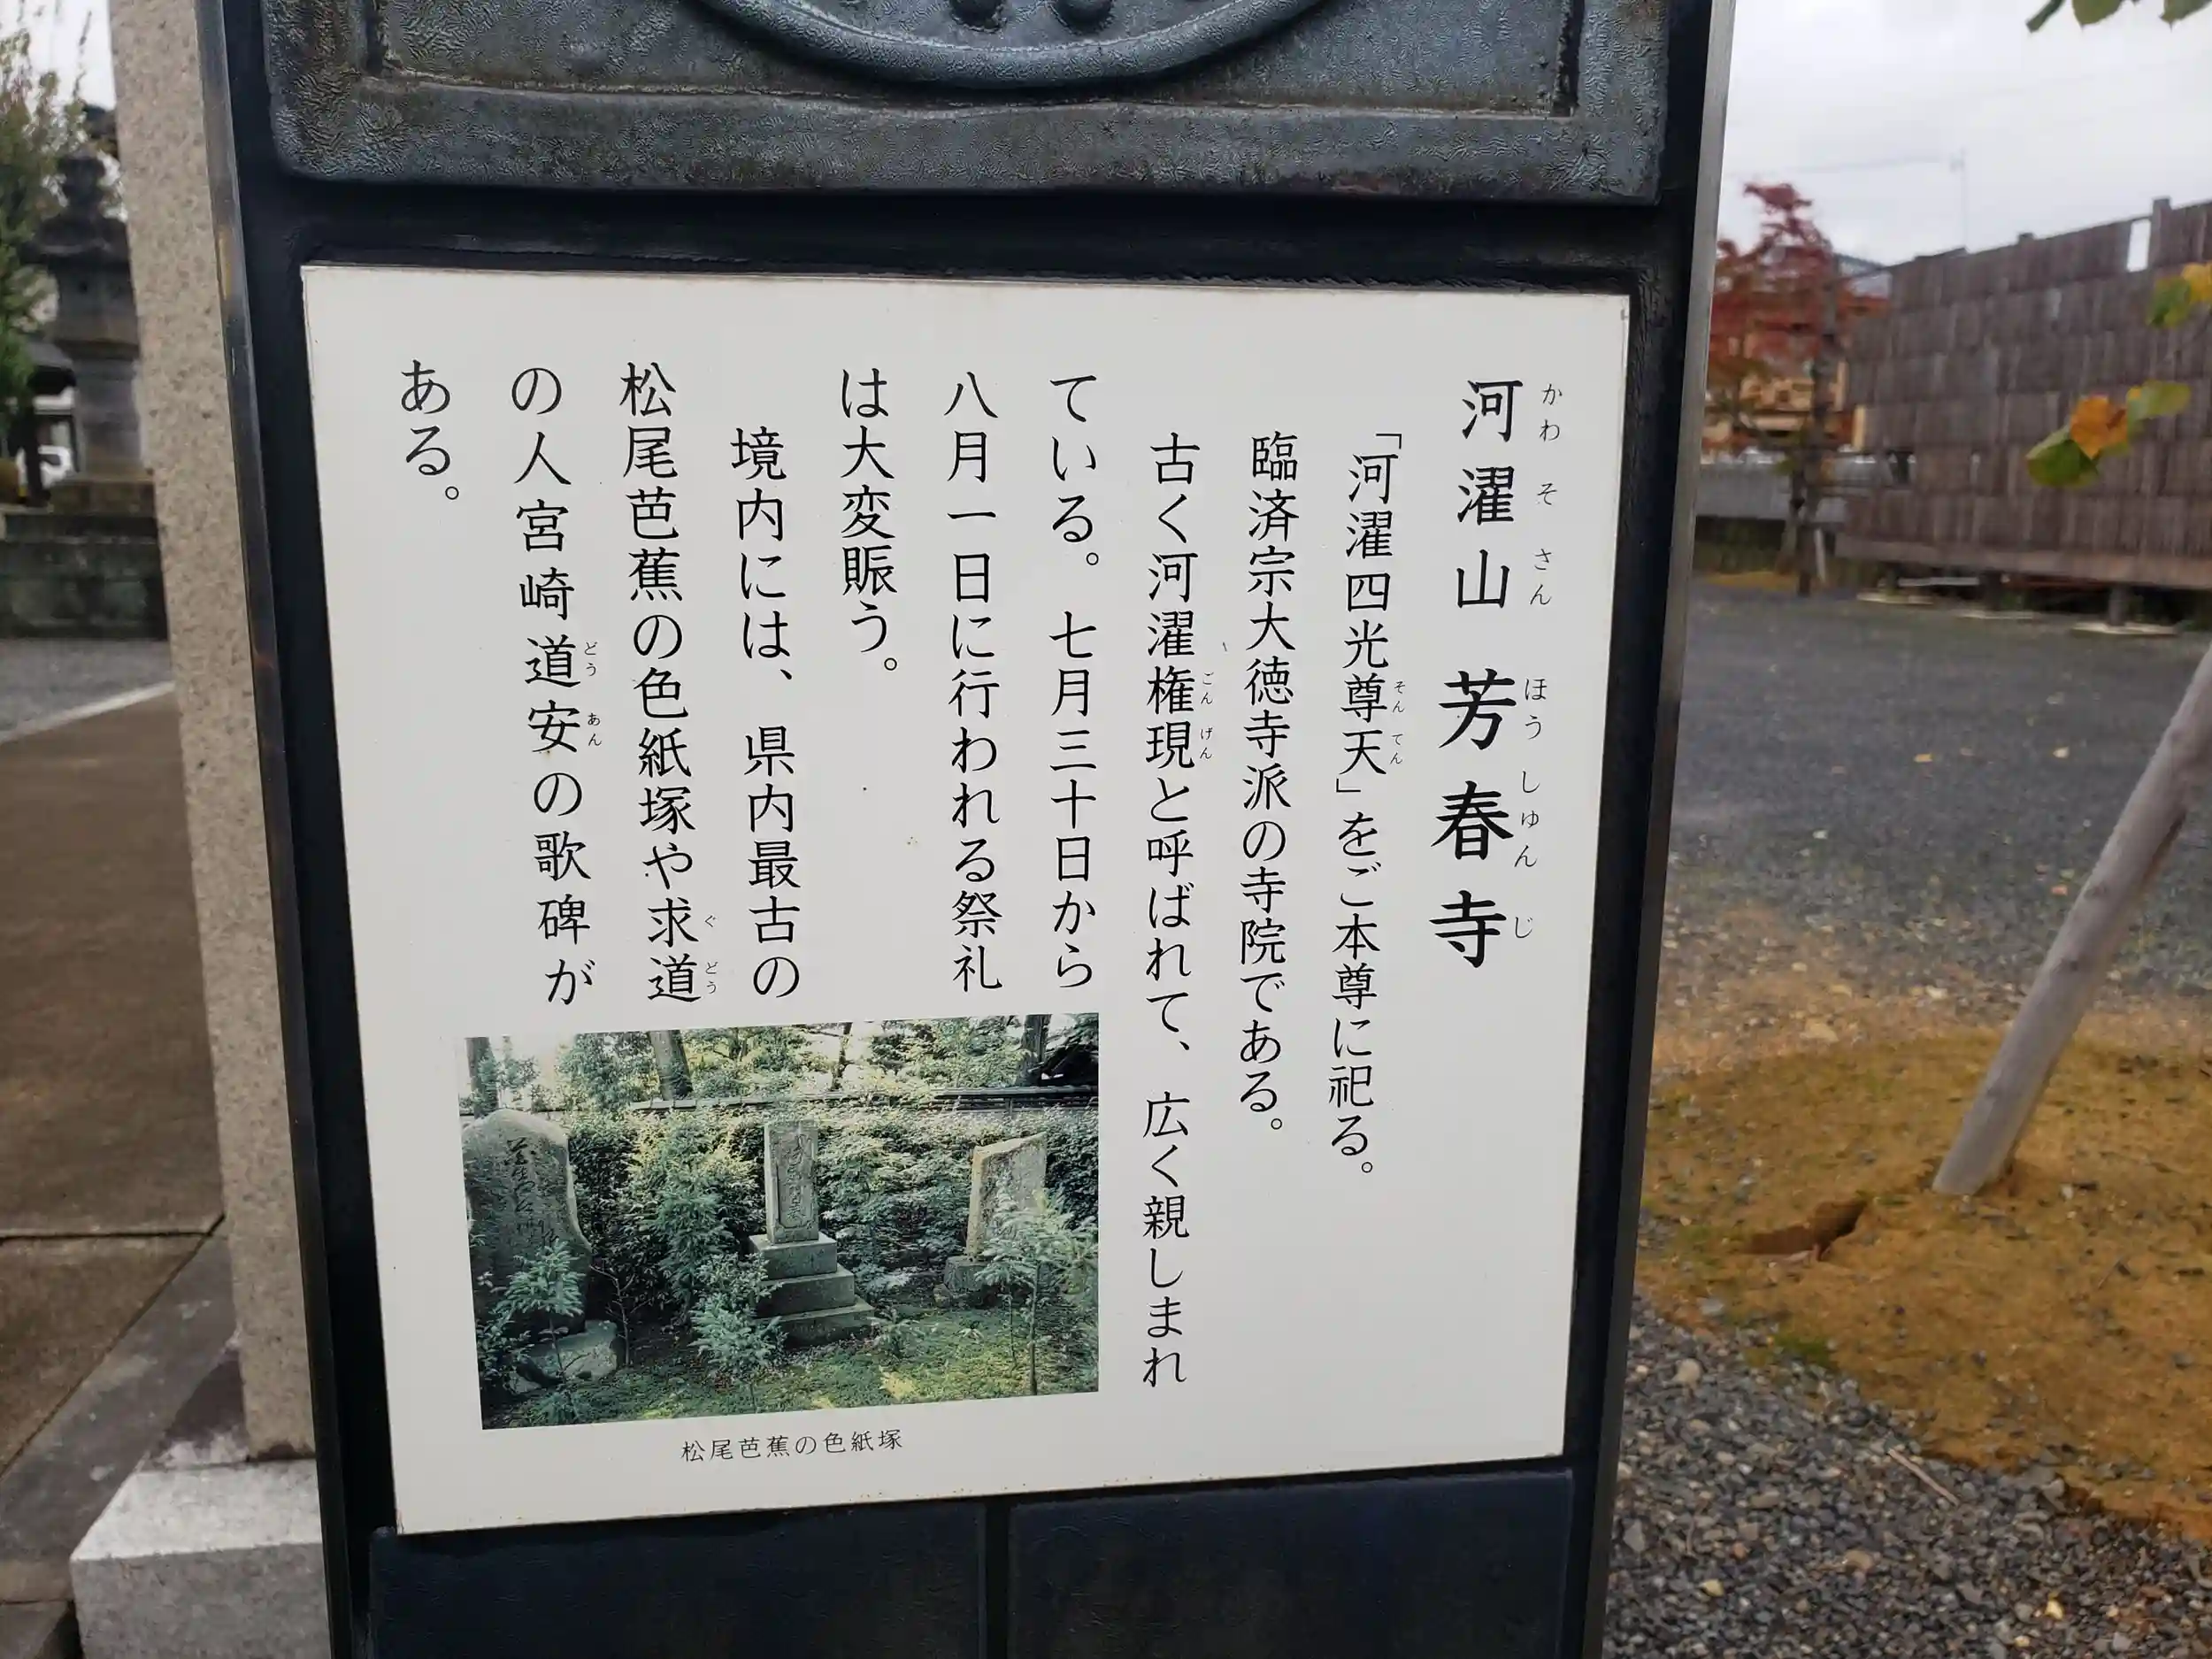 河濯山 芳春寺
かわそさん ほうしゅんじ
「河濯四光尊天」をご本尊に祀る。
そんてん
臨済宗大徳寺派の寺院である。
古く河濯権現と呼ばれて、広く親しまれ
ごんげん
ている。七月三十日から
八月一日に行われる祭礼
は大変賑う。
境内には、県内最古の
松尾芭蕉の色紙塚や求道
ぐどう
の人宮崎道安の歌碑が
どうあん
ある。
松尾芭蕉の色紙塚